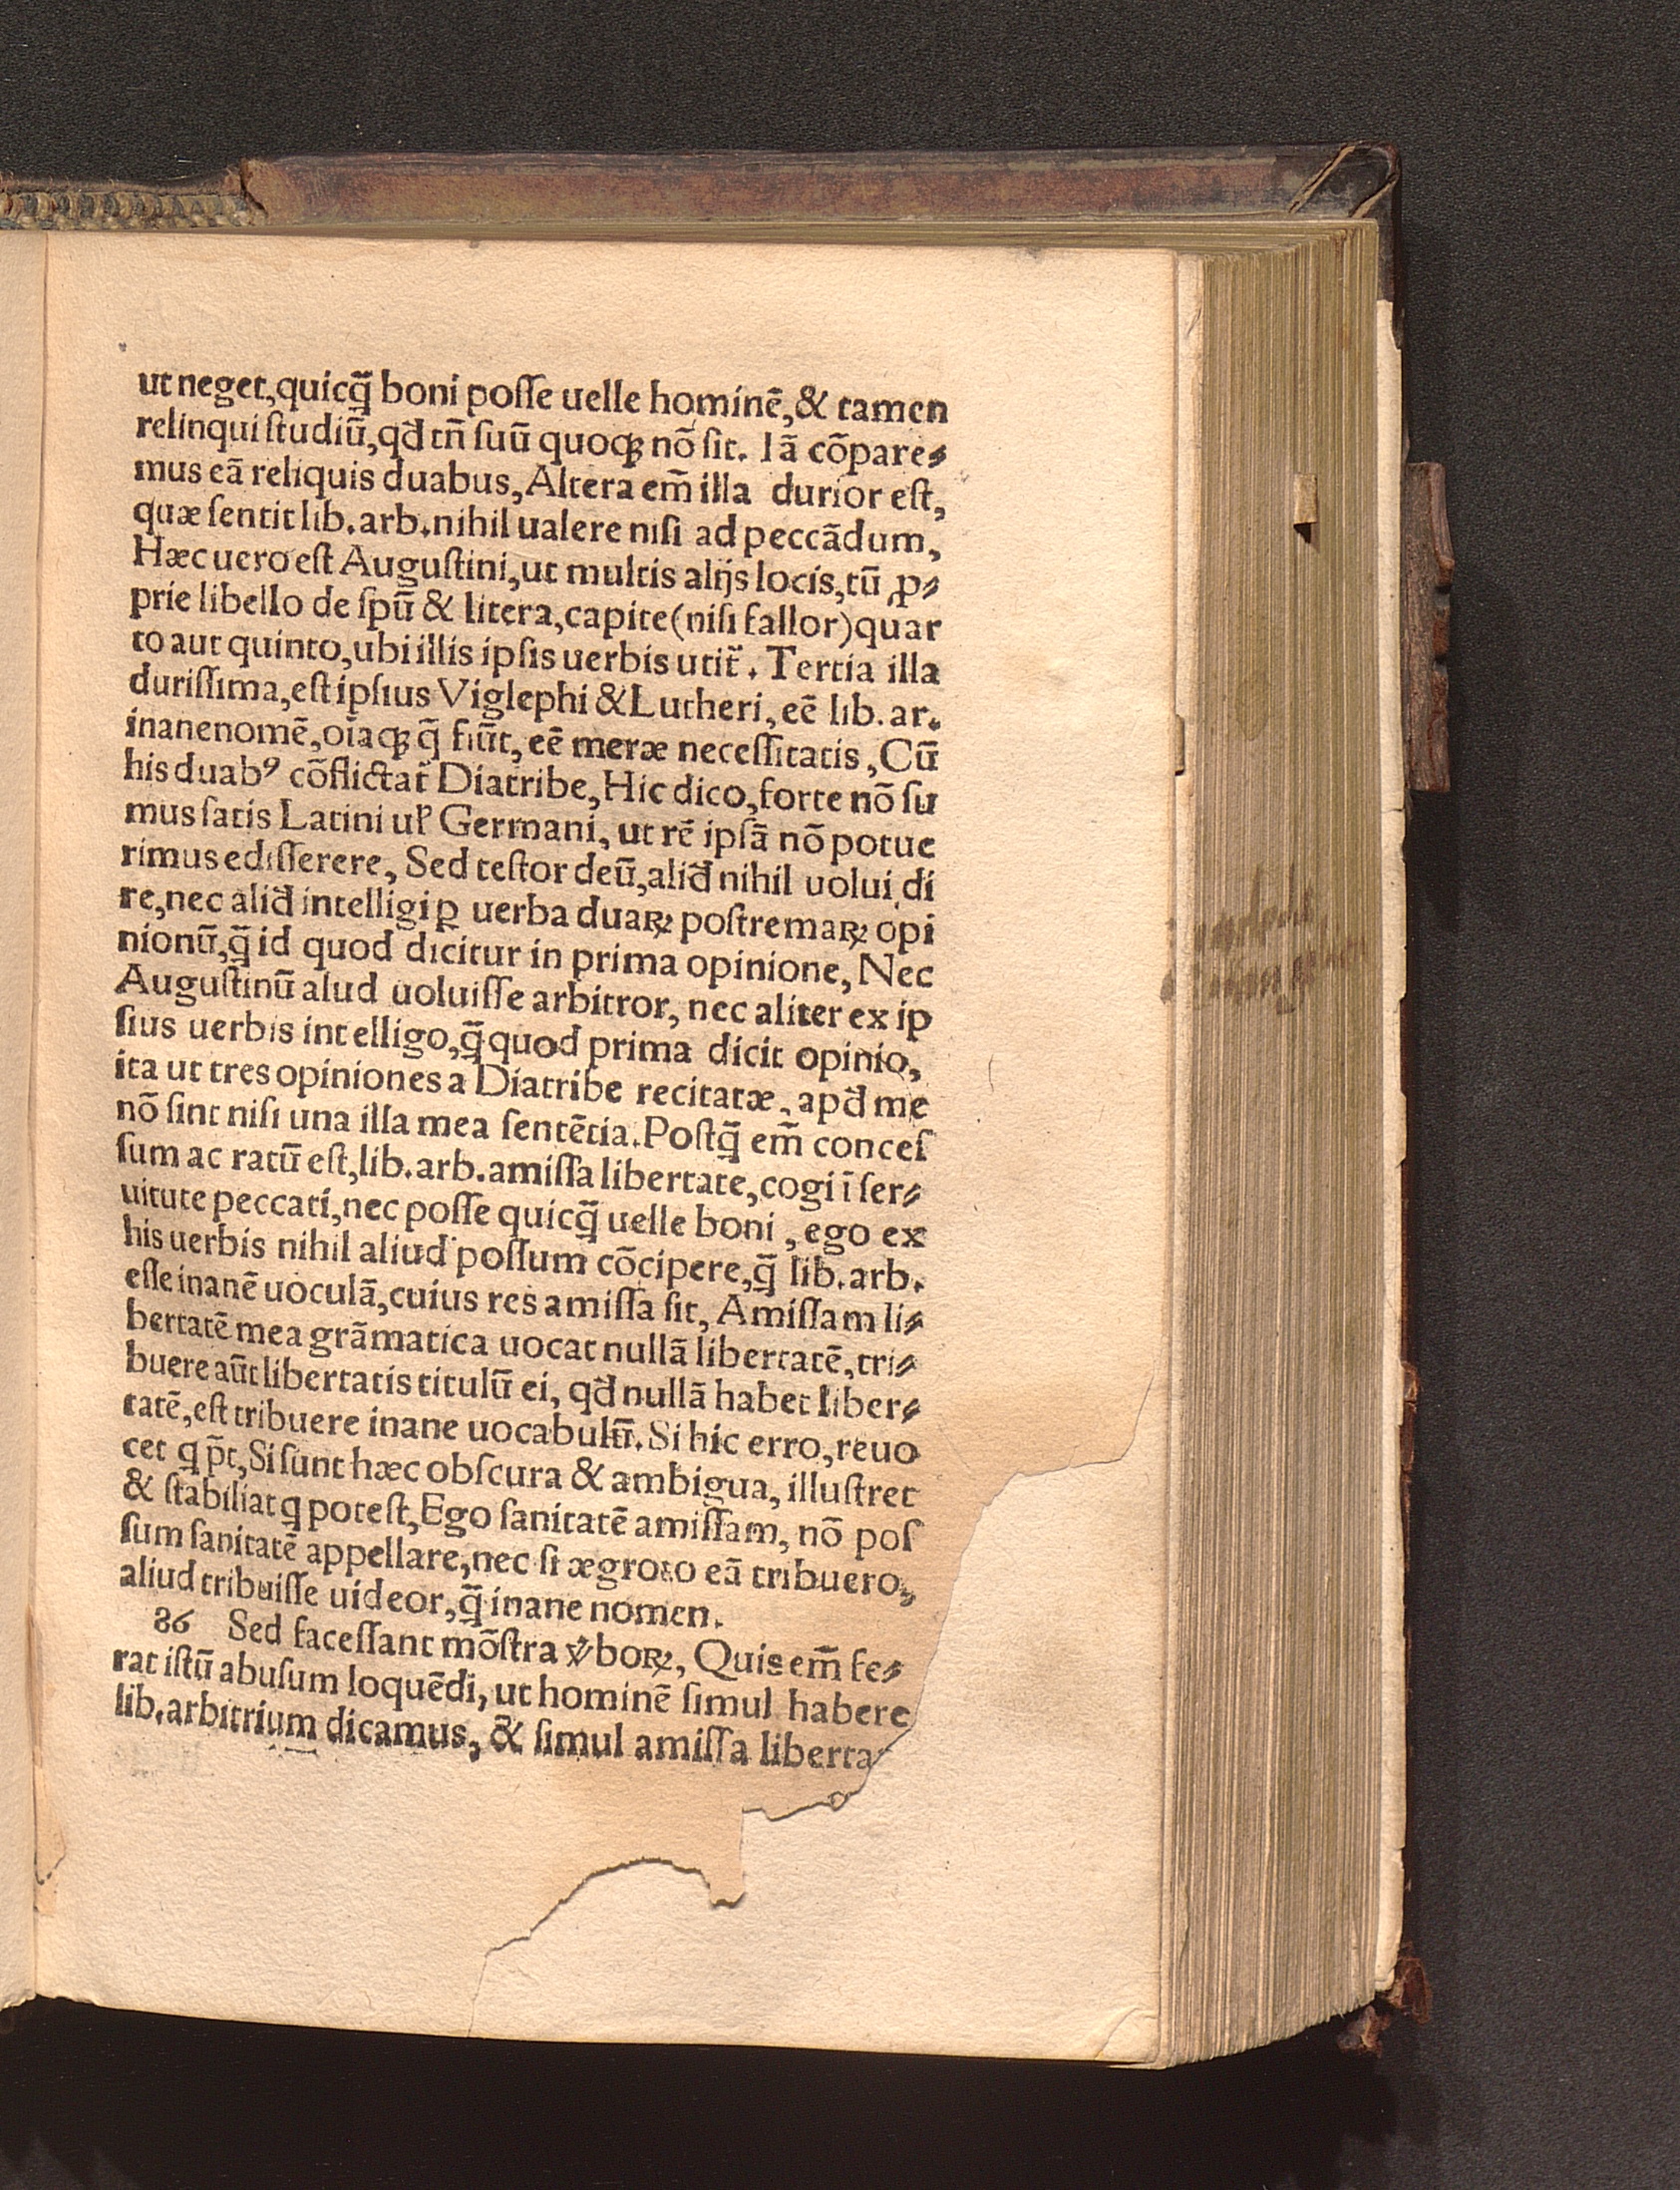 ut neget,quicq̃ boni poſſe uelle hominē,& tamen
relinqui ſtudiū,qđ tñ ſuū quoq; nō ſit. Iā cōpare⸗
mus eā reliquis duabus,Altera em̃ illa durior eſt,
quæ ſentit lib.arb.nihil ualere niſi ad peccādum,
Hæc uero eſt Auguſtini,ut multis alijs locis,tū ꝓ⸗
prie libello de ſpū & litera,capite(niſi fallor)quar
to aut quinto,ubi illis ipſis uerbis utit̃. Tertia illa
duriſſima,eſt ipſius Viglephi & Lutheri,eē lib. ar.
inane nomē,oīaq; q̃ fiūt,eē meræ neceſſitatis,Cū
his duabꝰ cōflictat̃ Diatribe,Hic dico,forte nō ſu
mus ſatis Latini uł Germani, ut rē ipſā nō potue
rimus ediſſerere, Sed teſtor deū,aliđ nihil uolui di
re,nec aliđ intelligi ꝑ uerba duaꝝ poſtremaꝝ opi
nionū,q̃ id quod dicitur in prima opinione, Nec
Auguſtinū alud uoluiſſe arbitror, nec aliter ex ip
ſius uerbis intelligo,q̃ quod prima dicit opinio,
ita ut tres opiniones a Diatribe recitatæ, apđ me
nō ſint niſi una illa mea ſentētia.Poſtq̃ em̃ conceſ
ſum ac ratū eſt,lib.arb.amiſſa libertate,cogi ī ſer⸗
uitute peccati,nec poſſe quicq̃ uelle boni , ego ex
his uerbis nihil aliud poſſum cōcipere,q̃ lib.arb.
eſſe inanē uoculā,cuius res amiſſa ſit, Amiſſam li⸗
bertatē mea grāmatica uocat nullā libertatē,tri⸗
buere aūt libertatis titulū ei, qđ nullā habet liber⸗
tatē,eſt tribuere inane uocabulū.Si hic erro,reuo
cet q p̃t,Si ſunt hæc obſcura & ambigua, illuſtret
& ſtabiliat q poteſt,Ego ſanitatē amiſſam, nō poſ
ſum ſanitatē appellare,nec ſi ægroto eā tribuero,
aliud tribuiſſe uideor,q̃ inane nomen.
86 Sed faceſſant mōſtra ꝟboꝝ, Quis em̃ fe⸗
rat iſtū abuſum loquēdi, ut hominē ſimul habere
lib.arbitrium dicamus, & ſimul amiſſa liberta